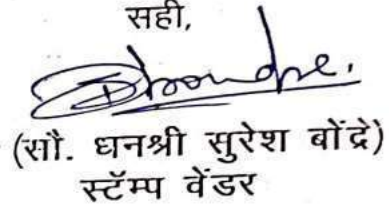 सही,
(सौ. धनश्री सुरेश बोंद्रे)
स्टॅम्प वेंडर